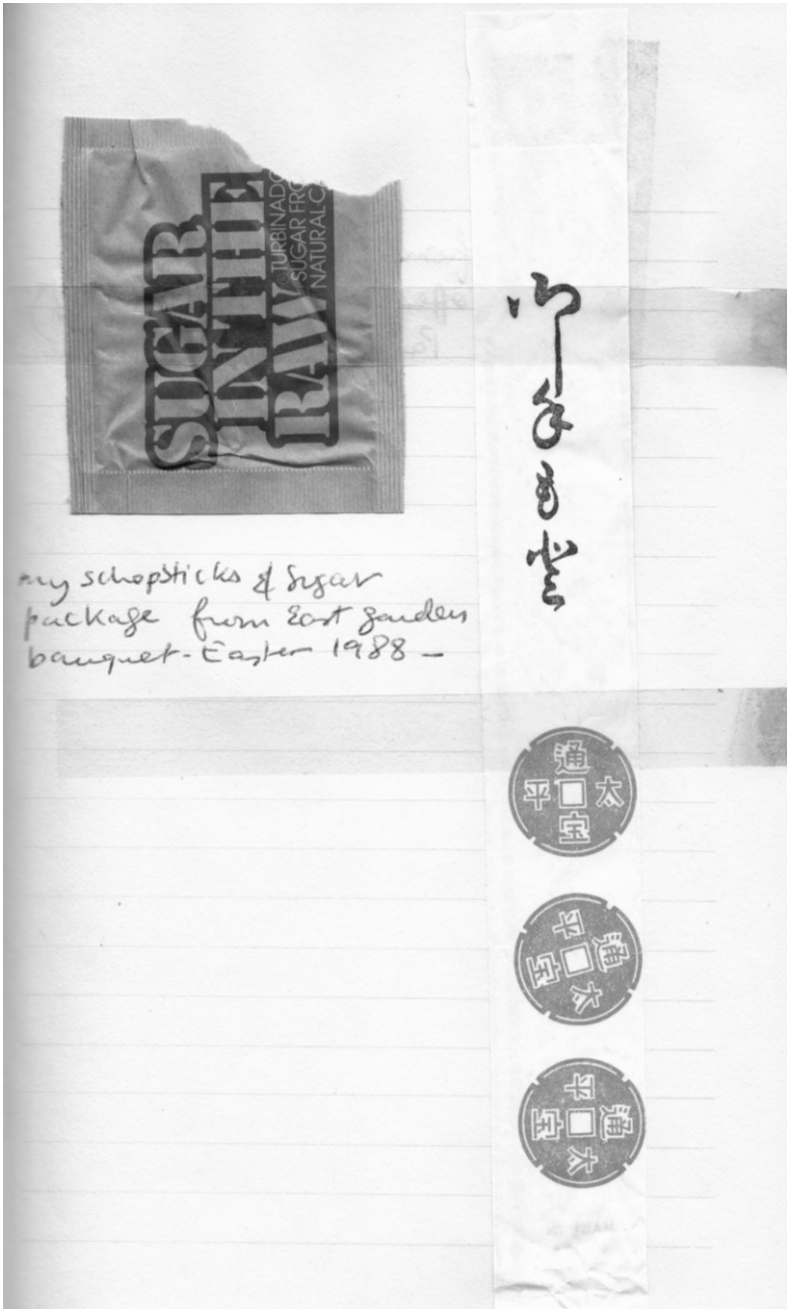 SUGAR
IN THE
RAW
TURBINADO
SUGAR FRO
NATURAL C
my schopsticks & Sugar
package from East garden
banquet - Easter 1988 –
御手毛登
太平通宝
太平通宝
太平通宝